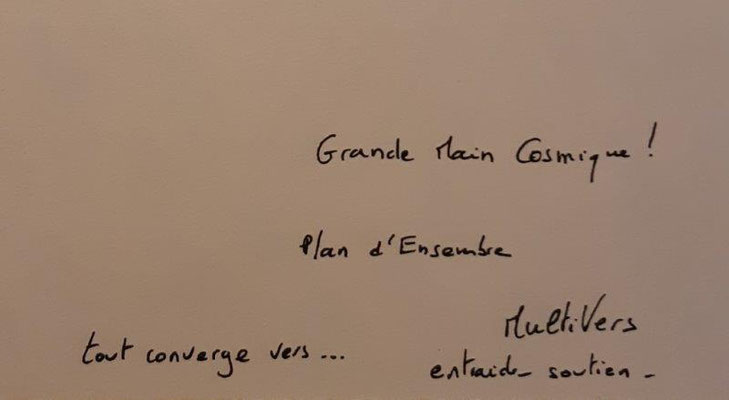 Grande Main Cosmique !
Plan d'Ensembre
MultiVers
tout converge vers...
entraide soutien -